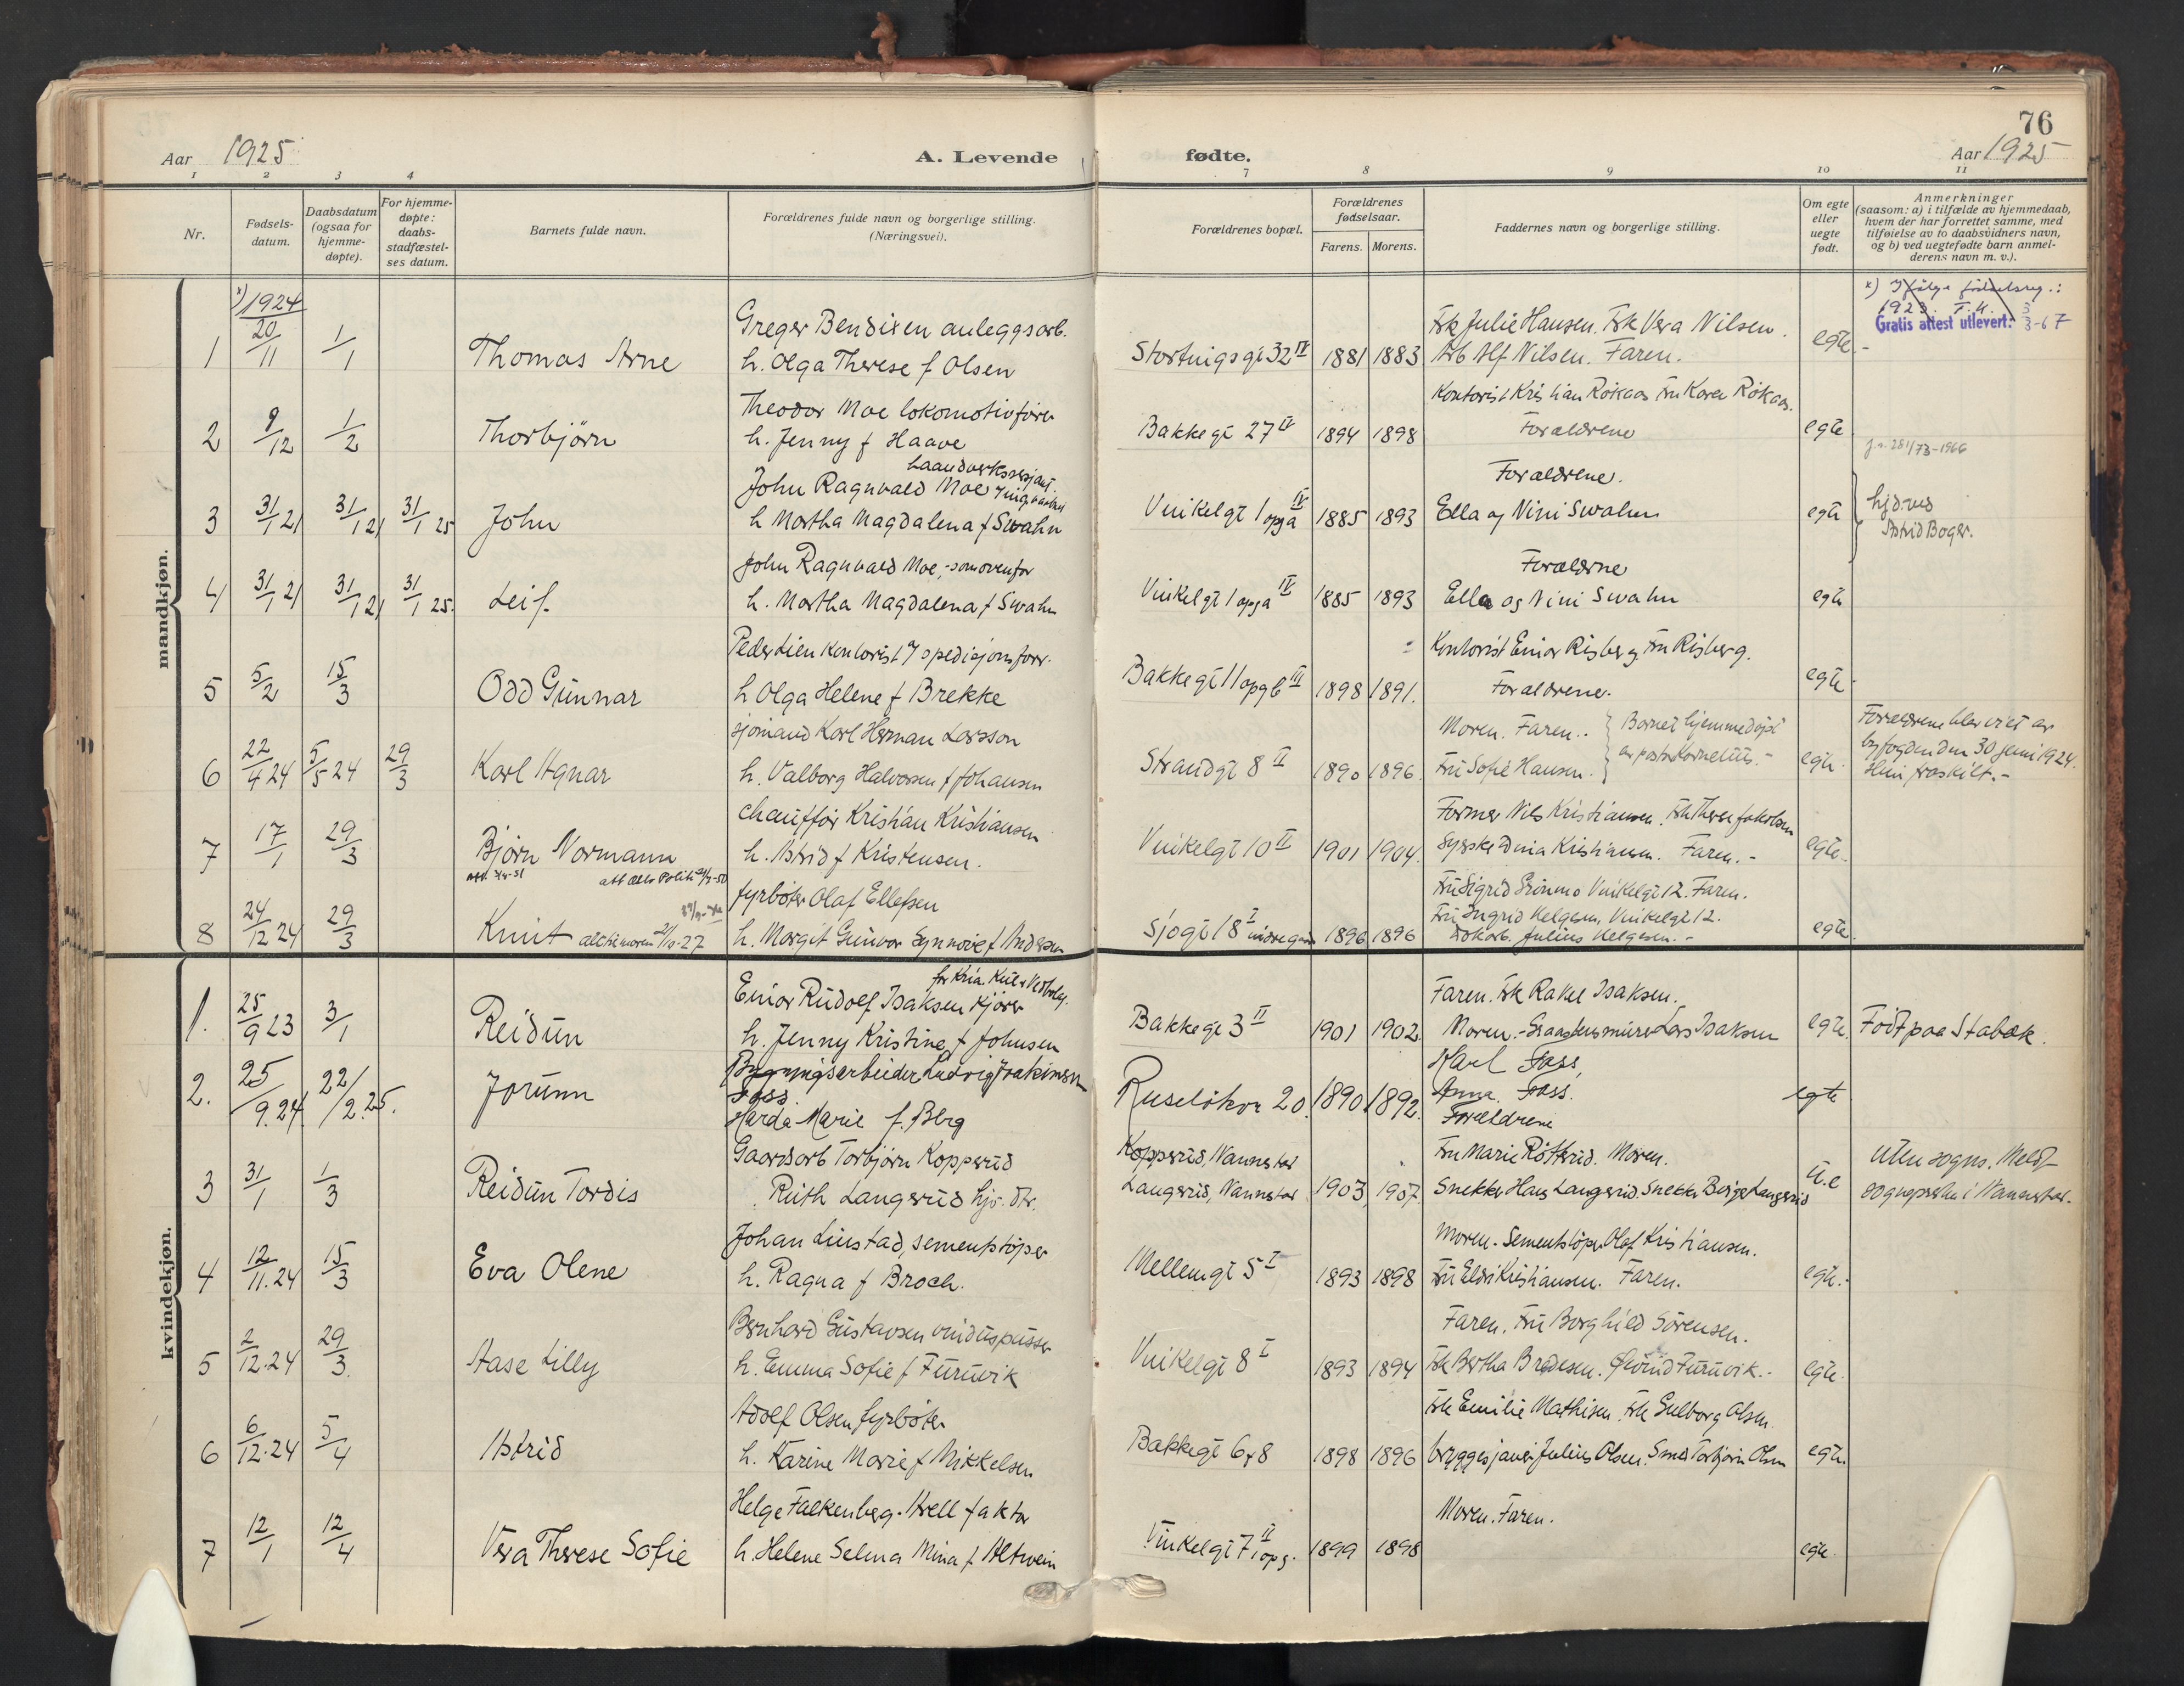 76
Aar 1925
A. Levende
fødte.
Aar 1925
1 2 3 4
7 8 9 10 11
Nr.
Fødsels-
datum.
Daabsdatum
(ogsaa for
hjemme-
døpte).
For hjemme-
døpte:
daabs-
stadfæstel-
ses datum.
Barnets fulde navn.
Forældrenes fulde navn og borgerlige stilling.
(Næringsvei).
Forældrenes bopæl.
Forældrenes
fødselsaar.
Farens. Morens.
Faddernes navn og borgerlige stilling.
Om egte
eller
uegte
født.
Anmerkninger
(saasom: a) i tilfælde av hjemmedaab,
hvem der har forrettet samme, med
tilføielse av to daabsvidners navn,
og b) ved uegtefødte barn anmel-
derens navn m. v.).
mandkjøn.
x) 1924
1 20/11 1/1 Thomas Arne
Greger Bendixen anleggsarb.
h. Olga Therese f Olsen
Stortingsgt 32 IV 1881 1883
Frk Julie Hansen. Frk Vera Nilsen.
Arb Alf Nilsen. Faren.
egte
x) Ifølge fødselsreg.:
1923. T.H.
Gratis attest utlevert. 3/3-67
2 9/12 1/2 Thorbjörn
Theodor Moe lokomotivförer
h. Jenny f Haave
Bakkegt 27 IV 1894 1898
Kontorist Kristian Rökaas Fru Karen Rökaas.
Forældrene
egte
3 31/1 21 31/1 21 31/1 25 John
John Ragnvald Moe
h Martha Magdalena f Swahn
Vinkelgt 1 opg a IV 1885 1893
Forældrene.
Ella og Nini Swahn
egte
hjd. ved
Astrid Boger.
4 31/1 21 31/1 21 31/1 25. Leif.
John Ragnvald Moe, - som ovenfor
h. Martha Magdalena f Swahn
Vinkelgt 1 opg a IV 1885 1893
Forældrne
Ella og Nini Swahn
egte
5 5/2 15/3 Odd Gunnar
Peder Lien kontorist i spedisjonsforr.
h Olga Helene f Brekke
Bakkegt 11 opg b III 1898 1891.
Kontorist Einar Risberg. Fru Risberg.
Forældrene.
egte
6 22/4 24 5/5 24 29/3 Karl Agnar
sjömand Karl Herman Larsson
h. Valborg Halvorsen f Johansen
Strandgt 8 II 1890 1896
Moren. Faren.. Barnet hjemmedöpt
Fru Sofie Hansen. av pastor Kornelius. -
egte.
Forældrene blev viet av
byfogden den 30 juni 1924.
Hun fraskilt. -
7 17/1 29/3 Björn Normann
chaufför Kristian Kristiansen
h. Astrid f Kristensen.
Vinkelgt 10 II 1901 1904
Former Nils Kristiansen. Frk Therese Jakobsen
Sypike Dina Kristiansen. Faren. -
egte.
8 24/12 24 29/3 Knut att til moren 21/10-27
fyrböter Olaf Ellefsen
h. Margit Gunvor Synnöve f Andersen
Sjögt 18 I 1896 1896
Fru Sigrid Grönmo Vinkelgt 12. Faren.
Fru Ingrid Helgesen, Vinkelgt 12.
Julius Helgesen. -
egte
kvindekjøn.
1. 25/9 23 3/1 Reidun
Einar Rudolf Isaksen kjörer
h. Jenny Kristine f Johnsen
Bakkegt 3 II 1901 1902.
Faren. Frk Rakel Isaksen.
Moren. - Graastensmurer Lars Isaksen
egte.
Födt paa Stabæk.
2. 25/9.24 22/2.25. Jorunn
Bygningsarbeider Ludvig Joakimsen
Foss
Harda Marie f. Berg
Ruselökvn 20. 1890 1892.
Karl Foss,
Anna Foss.
Forældrene
egte
3 31/1 1/3 Reidun Tordis
Gaardsarb Torbjörn Kopperud
Ruth Langerud hjv. dtr.
Kopperud, Nannestad
Langerud, Nannestad 1903 1907.
Fru Marie Rötterud. Moren.
Snekker Hans Langerud. Snekker Börge Langerud
u.e
Uten sogns. Meldt
sogneprsten i Nannestad.
4 12/11.24 15/3 Eva Olene
Johan Linstad, sementstöper
h. Ragna f Broch.
Mellemgt 5 I 1893 1898
Moren. Sementstöper Olaf Kristiansen.
Fru Eldri Kristiansen. Faren.
egte.
5 2/12.24 29/3. Aase Lilly
Bernhard Gustavsen vinduspusser
h. Emma Sofie f Furuvik
Vinkelgt 8 I 1893 1894
Faren. Fru Borghild Sörensen.
Frk Bertha Bredesen. Öivind Furuvik. -
egte.
6 6/12.24 5/4 Astrid
Adolf Olsen fyrböter
h. Karine Marie f Mikkelsen
Bakkegt 6 & 8 1898 1896
Frk Emilie Mathisen. Frk Gulborg Olsen.
bryggesjauer Julius Olsen. Smed Torbjörn Olsen
egte.
7 12/1 12/4 Vera Therese Sofie
Helge Falkenberg-Krell faktor
h. Helene Selma Mina f Altwein
Vinkelgt 7 II 1 opg. 1899 1898
Moren. Faren.
egte